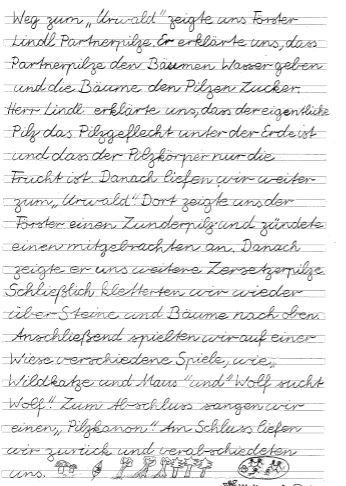 Weg zum „Urwald" zeigte uns Förster
Lindl Partnerpilze. Er erklärte uns, dass
Partnerpilze den Bäumen Wasser geben
und die Bäume den Pilzen Zucker.
Herr Lindl erklärte uns, dass der eigentliche
Pilz das Pilzgeflecht unter der Erde ist
und dass der Pilzkörper nur die
Frucht ist. Danach liefen wir weiter
zum „Urwald" Dort zeigte uns der
Förster einen Zunderpilz und zündete
einen mitgebrachten an. Danach
zeigte er uns weitere Zersetzerpilze.
Schließlich kletterten wir wieder
über Steine und Bäume nach oben.
Anschließend spielten wir auf einer
Wiese verschiedene Spiele, wie „
Wildkatze und Maus "und" Wolf sucht
Wolf". Zum Abschluss sangen wir
einen „Pilzkanon" An Schluss liefen
wir zurück und verabschiedeten
uns.